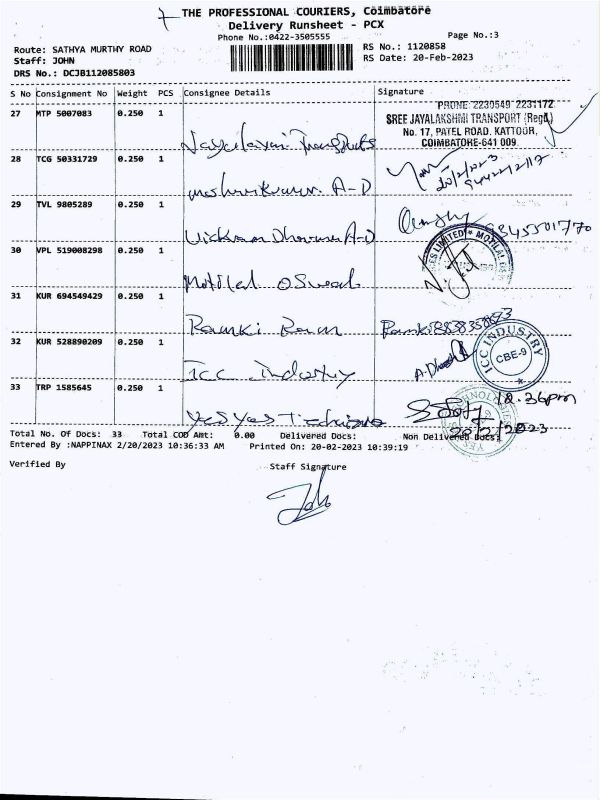 THE PROFESSIONAL COURIERS, Coimbatore
Delivery Runsheet - PCX
Phone No.:0422-3505555
Page No.:3
Route: SATHYA MURTHY ROAD
RS No.: 1120858
Staff: JOHN
RS Date: 20-Feb-2023
DRS No.: DCJB112085803
S No Consignment No Weight PCS Consignee Details Signature
PHONE: 2230549 2231172
27 MTP 5007083 0.250 1 SREE JAYALAKSHMI TRANSPORT (Regd.)
No. 17, PATEL ROAD, KATTOOR,
COIMBATORE-641 009.
28 TCG 50331729 0.250 1
A-D
29 TVL 9805289 0.250 1
A-D
30 VPL 519008298 0.250 1
Motilal Oswal
31 KUR 694549429 0.250 1
Ramki Ram Ramki
32 KUR 528890209 0.250 1
ICC industry
ICC INDUSTRY
CBE-9
33 TRP 1585645 0.250 1
18.36pm
20/2/2023
Total No. Of Docs: 33 Total COD Amt: 0.00 Delivered Docs: Non Delivered Docs:
Entered By :NAPPINAX 2/20/2023 10:36:33 AM Printed On: 20-02-2023 10:39:19
Verified By Staff Signature